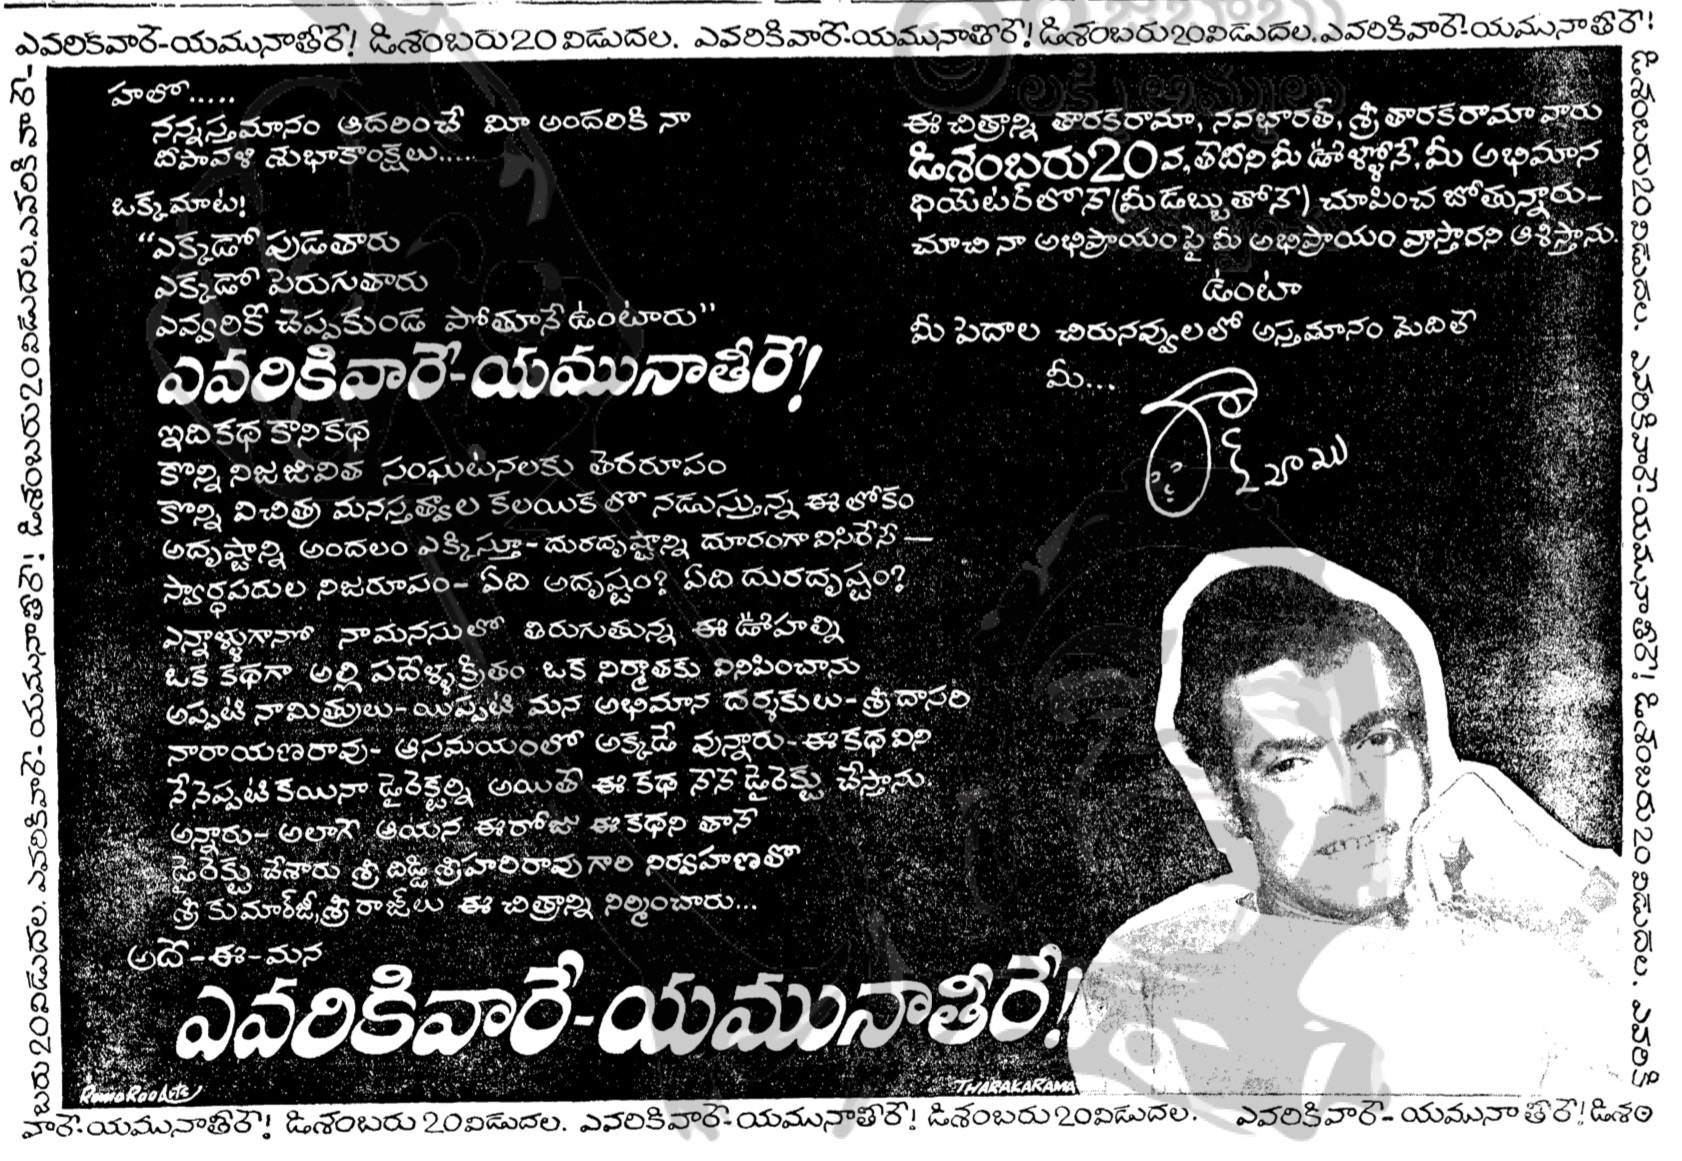 ఎవరికివారే-యమునాతీరే! డిశంబరు 20 విడుదల. ఎవరికివారే-యమునాతీరే! డిశంబరు 20 విడుదల. ఎవరికివారే-యమునాతీరే!
హలో.....
నన్నస్తమానం ఆదరించే మీ అందరికి నా
దీపావళి శుభాకాంక్షలు....
ఒక్కమాట!
"ఎక్కడో పుడతారు
ఎక్కడో పెరుగుతారు
ఎవ్వరికీ చెప్పకుండ పోతూనే ఉంటారు"
ఎవరికివారే-యమునాతీరే!
ఇది కథ కాని కథ
కొన్ని నిజజీవిత సంఘటనలకు తెరరూపం
కొన్ని విచిత్ర మనస్తత్వాల కలయికలో నడుస్తున్న ఈ లోకం
అదృష్టాన్ని అందలం ఎక్కిస్తూ- దురదృష్టాన్ని దూరంగా విసిరేసే —
స్వార్థపరుల నిజరూపం- ఏది అదృష్టం? ఏది దురదృష్టం?
ఎన్నాళ్లుగానో నా మనసులో తిరుగుతున్న ఈ ఊహల్ని
ఒక కథగా అల్లి పదేళ్ళక్రితం ఒక నిర్మాతకు వినిపించాను
అప్పటి నా మిత్రులు- యిప్పటి మన అభిమాన దర్శకులు- శ్రీ దాసరి
నారాయణరావు- ఆ సమయంలో అక్కడే వున్నారు- ఈ కథ విని
నేనెప్పటికయినా డైరెక్టర్ని అయితే ఈ కథ నేనే డైరెక్టు చేస్తాను.
అన్నారు- అలాగే ఆయన ఈరోజు ఈ కథని తానే
డైరెక్టు చేశారు శ్రీ దిడ్డి శ్రీహరిరావు గారి నిర్వహణలో
శ్రీ కుమార్‌జీ, శ్రీ రాజ్‌లు ఈ చిత్రాన్ని నిర్మించారు...
అదే-ఈ-మన
ఎవరికివారే-యమునాతీరే!
ఈ చిత్రాన్ని తారకరామా, నవభారత్, శ్రీ తారకరామా వారు
డిశంబరు 20 వ, తేదీని మీ ఊళ్ళోనే, మీ అభిమాన
థియేటర్‌లోనే (మీ డబ్బుతోనే) చూపించ బోతున్నారు-
చూచి నా అభిప్రాయం పై మీ అభిప్రాయం వ్రాస్తారని ఆశిస్తాను.
ఉంటా
మీ పెదాల చిరునవ్వులలో అస్తమానం మెదిలే
మీ...
THARAKARAMA
వారే-యమునాతీరే! డిశంబరు 20 విడుదల. ఎవరికివారే-యమునాతీరే! డిశంబరు 20 విడుదల. ఎవరికివారే-యమునాతీరే! డిశం
బరు 20 విడుదల. ఎవరికివారే- యమునాతీరే! డిశంబరు 20 విడుదల. ఎవరికి వారే-
డిశంబరు 20 విడుదల. ఎవరికివారే-యమునాతీరే! డిశంబరు 20 విడుదల. ఎవరికి